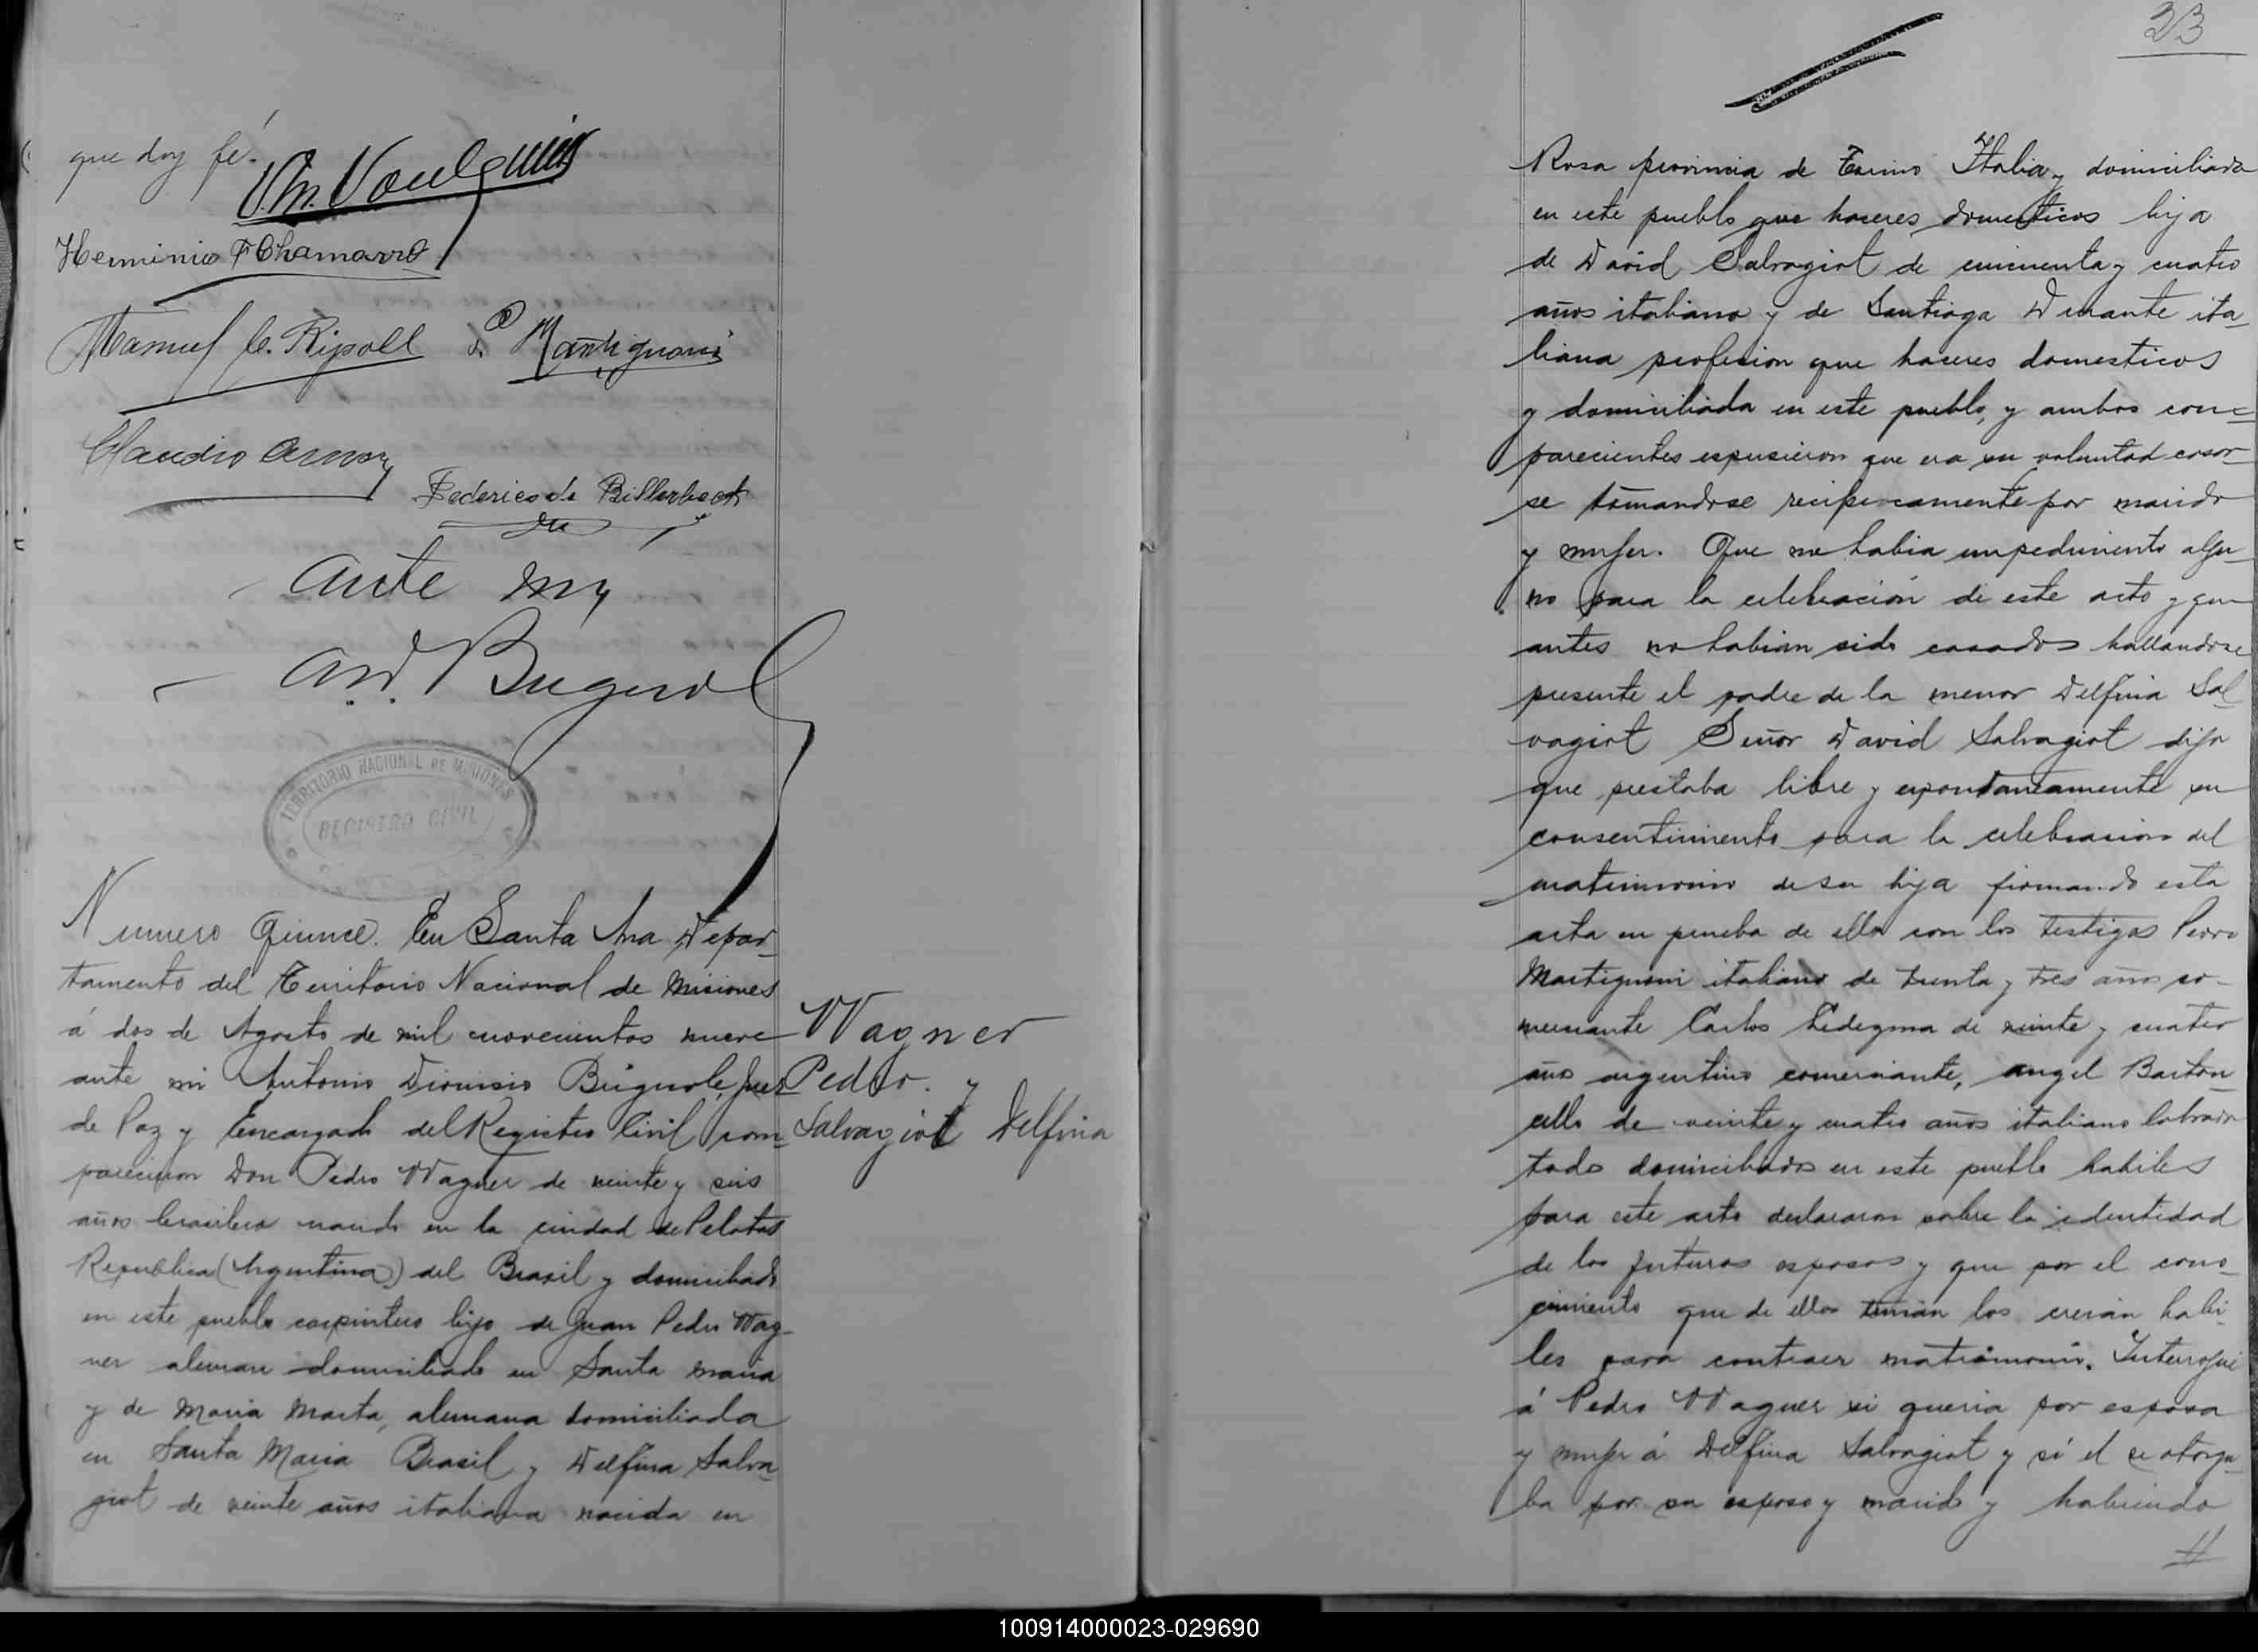 que doy fé.
Herminio F Chamorro
Manuel C. Ripoll P. Martignoni
Claudio
Federico de Billerbeck
Ante my
An. D. Bugnol
TERRITORIO NACIONAL DE MISIONES
REGISTRO CIVIL
Numero Quince. En Santa Ana Depar-
tamento del Territorio Nacional de Misiones
á dos de Agosto de mil novecientos nueve
ante mi Antonio Dionisio Bugnole, Juez
de Paz y Encargado del Registro Civil com-
parecieron Don Pedro Wagner de veinte y seis
años brasilero nacido en la ciudad de Pelotas
Republica (Argentina) del Brasil y domiciliado
en este pueblo carpintero hijo de Juan Pedro Wag-
ner aleman domiciliado en Santa maria
y de Maria Marta, alemana domiciliada
en Santa Maria Brasil y Delfina Salva-
giot de veinte años italiana nacida en
Wagner
Pedro. y
Salvagiot Delfina
23
Rosa provincia de Torino Italia y domiciliada
en este pueblo que haceres domesticos hija
de David Salvagiot de cincuenta y cuatro
años italiano y de Santiaga Durante ita-
liana profesion que haceres domesticos
y domiciliada en este pueblo, y ambos com-
parecientes espusieron que era su voluntad casar-
se tomandose reciprocamente por marido
y mujer. Que no habia impedimento algu-
no para la celebración de este acto y que
antes no habian sido casados hallandose
presente el padre de la menor Delfina Sal-
vagiot Señor David Salvagiot dijo
que prestaba libre y espontaneamente su
consentimiento para la celebracion del
matrimonio de su hija firmando esta
acta en prueba de ello con los testigos Pedro
Martignoni italiano de treinta y tres años co-
merciante Carlos Ledezma de veinte y cuatro
años argentino comerciante, Angel Barton-
cello de veinte y cuatro años italiano labrador
todos domiciliados en este pueblo habiles
para este acto declararon sobre la identidad
de los futuros esposos y que por el cono-
cimiento que de ellos tenian los creian habi-
les para contraer matrimonio. Interrogué
á Pedro Wagner si queria por esposa
y mujer á Delfina Salvagiot y si el se otorga-
ba por su esposo y marido y habiendo